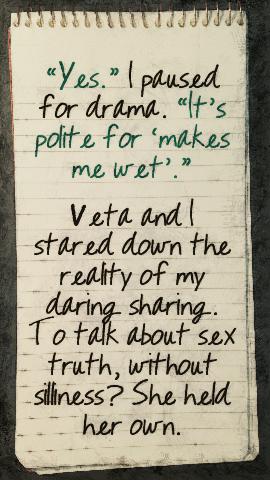 “Yes.” I paused
for drama. “It’s
polite for ‘makes
me wet’.”
Veta and I
stared down the
reality of my
daring sharing.
To talk about sex
truth, without
silliness? She held
her own.